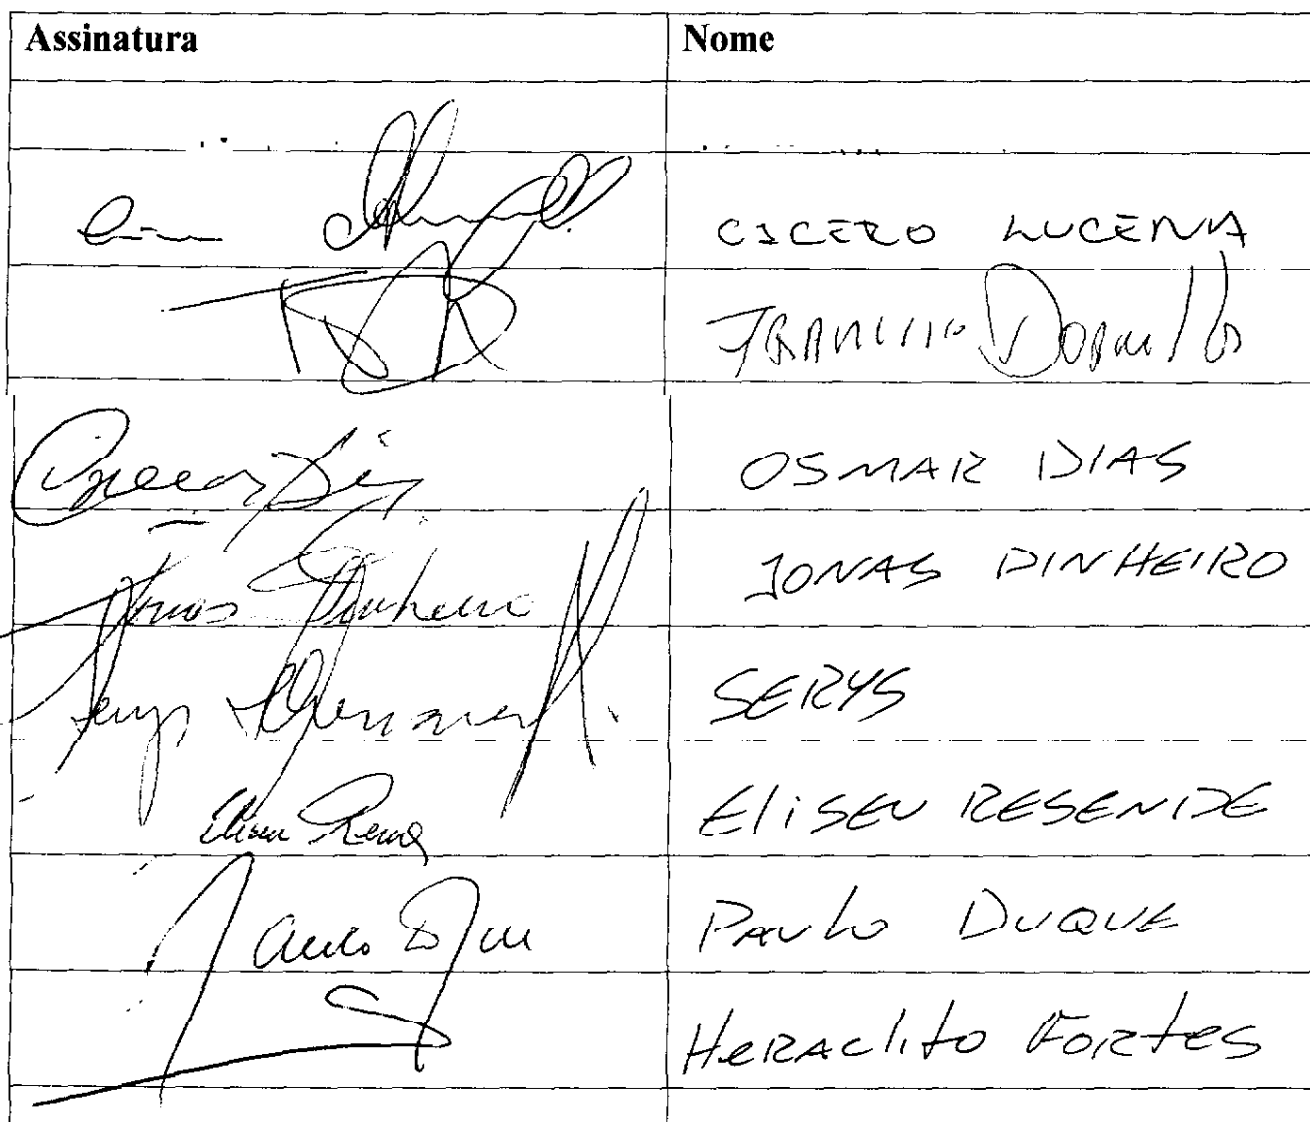 Assinatura Nome
CICERO LUCENA
FRANCISCO DORNELLES
OSMAR DIAS
Jonas Pinheiro JONAS PINHEIRO
Serys SERYS
Eliseu Resende EliSEU RESENDE
Paulo Duque PAULO DUQUE
HeRAClito FORtes